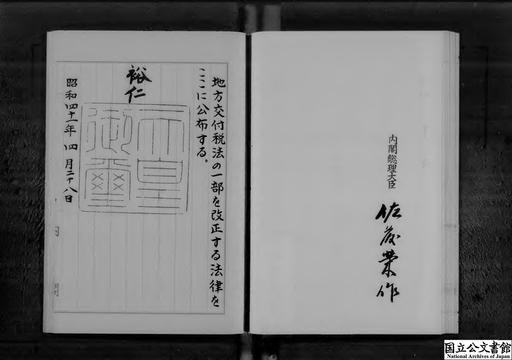 内閣総理大臣
佐藤榮作
地方交付税法の一部を改正する法律を
ここに公布する。
裕仁
天皇御璽
昭和四十一年四月二十八日
国立公文書館
National Archives of Japan